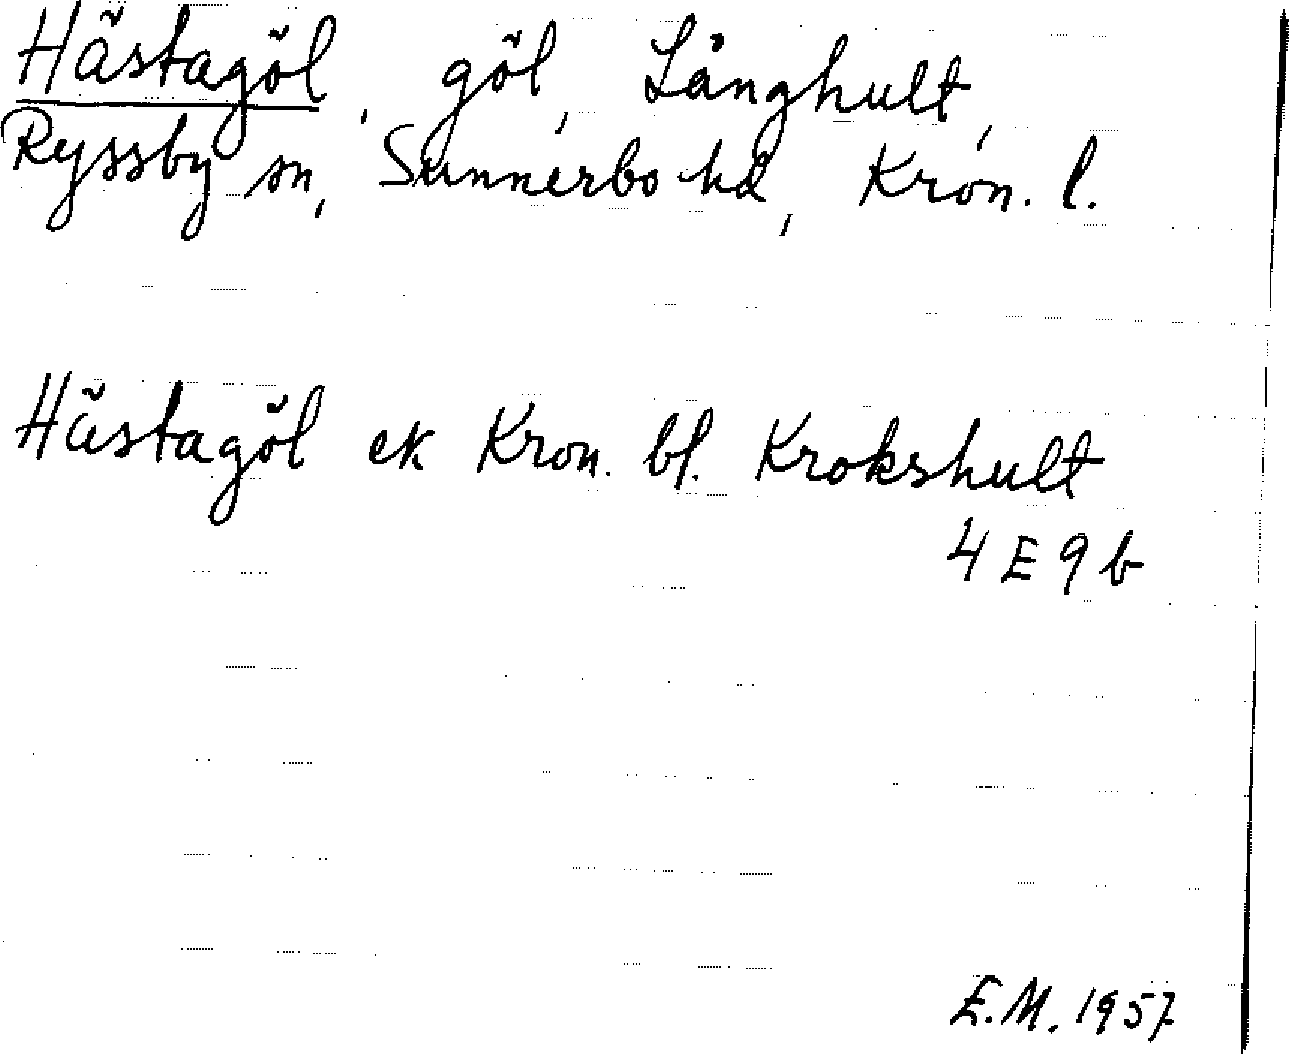 Hästagöl, göl, Långhult,
Ryssby sn, Sunnerbo hd, Kron. l.
Hästagöl ek Kron. bl. Krokshult
4 E 9 b
E.M. 1957